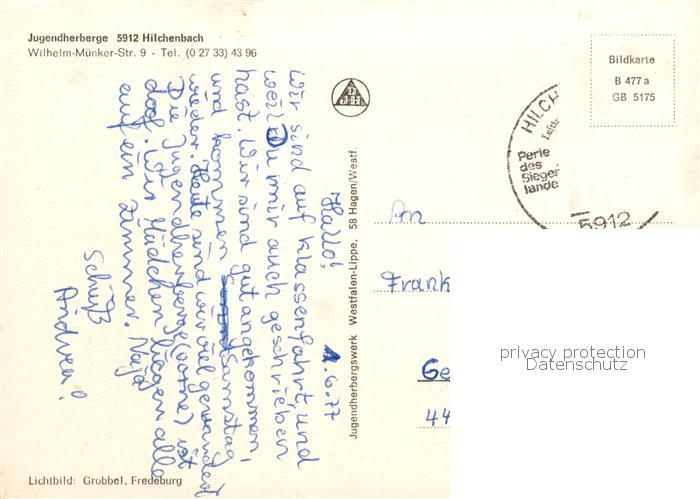 Jugendherberge 5912 Hilchenbach
Wilhelm-Münker-Str. 9 - Tel. (0 27 33) 43 96
Bildkarte
B 477 a
GB 5175
HILCH
Luftk
Perle
des
Sieger
lande
5912
1.6.77
Hallo!
Wir sind auf Klassenfahrt, und
weil Du mir auch geschrieben
hast. Wir sind gut angekommen,
und kommen Samstag
wieder. Heute sind wir viel gewandert
Die Jugendherberge (vorne) ist
doof. Wir Mädchen liegen alle
auf ein Zimmer. Naja
Schüß
Andrea!
Jugendherbergswerk Westfalen-Lippe, 58 Hagen/Westf.
An
Frank
Ge
44
privacy protection
Datenschutz
Lichtbild: Grobbel, Fredeburg